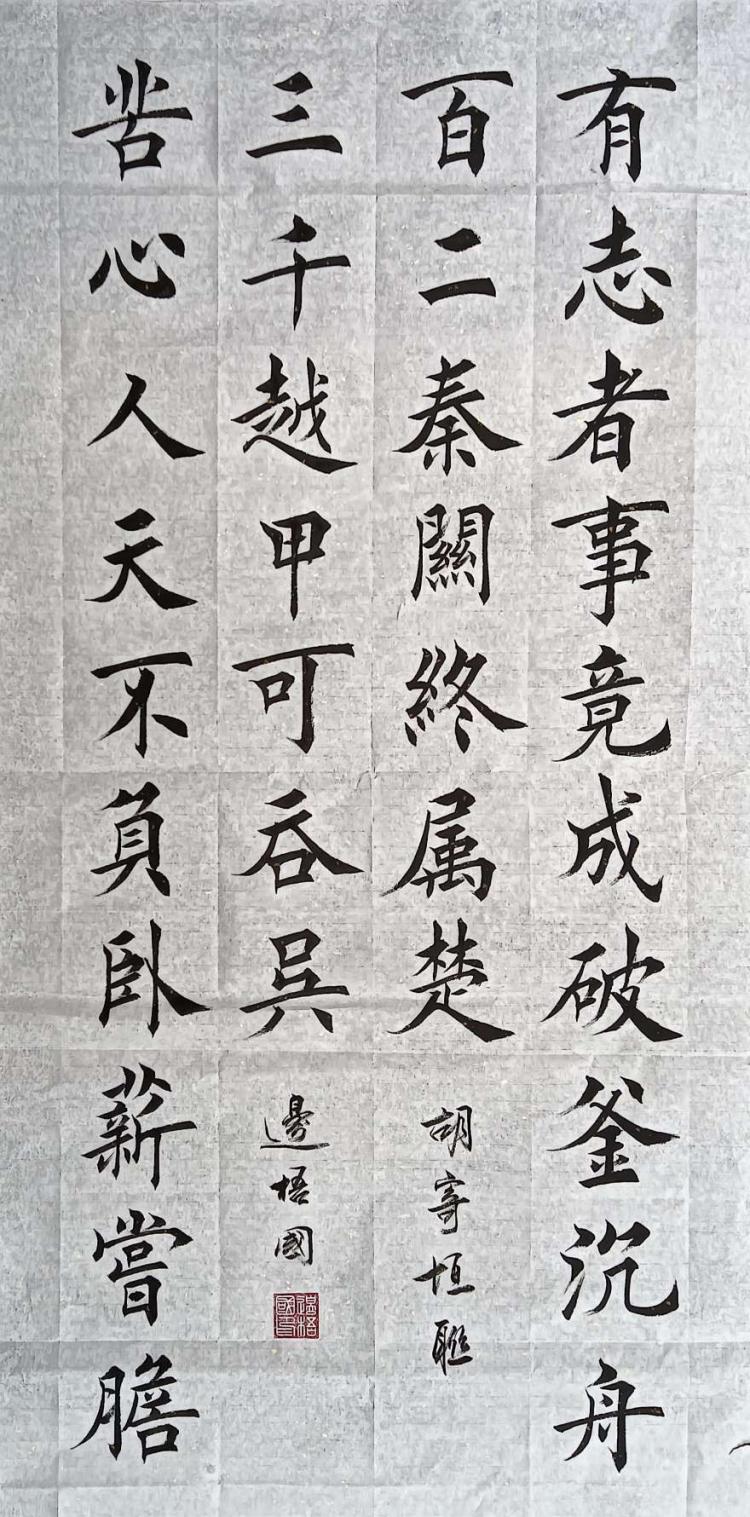 有志者事竟成破釜沉舟
百二秦關終属楚
胡寄垣聯
苦心人天不負臥薪嘗膽
三千越甲可吞吳
邊梧國